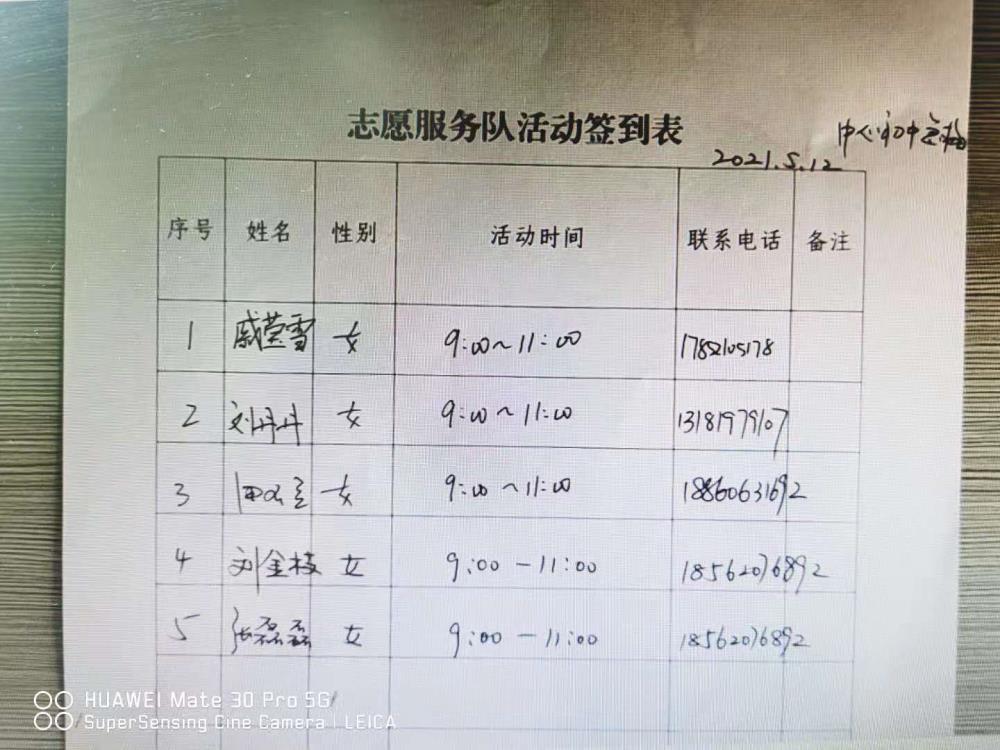 志愿服务队活动签到表
2021.5.12
序号 姓名 性别 活动时间 联系电话 备注
1 戚莹雪 女 9:00~11:00 17852105178
2 刘丹丹 女 9:00~11:00 13181979107
3 女 9:00~11:00 18860631692
4 刘金枝 女 9:00-11:00 18562076892
5 张磊磊 女 9:00-11:00 18562076892
HUAWEI Mate 30 Pro 5G
SuperSensing Cine Camera | LEICA